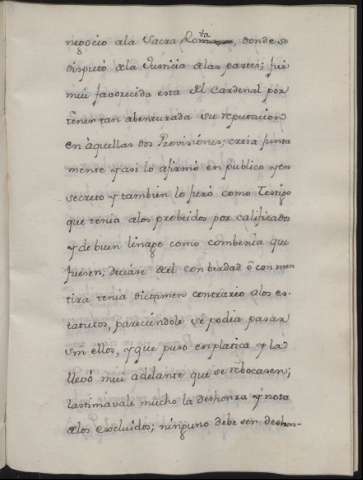 negocio ala Sacra Rota, donde se
disputó dela Justicia delas partes; fué
mui favorecida esta del Cardenal por
tener tan abenturada su reputacion
en aquellas dos Provisiones; creia firme
mente y asi lo afirmó en publico y en
secreto y tambien lo juró como Testigo
que tenia alos probeidos por calificados
y de buen linage como combenia que
fuesen, deciase del con birdad ó con men
tira tenia dictamen contrario alos es-
tatutos, pareciendole se podia pasar
sin ellos, y que puso en platica y la
llevó mui adelante que se rebocasen;
lastimavale mucho la deshonra y nota
delos excluidos; ninguno debe ser deshon-